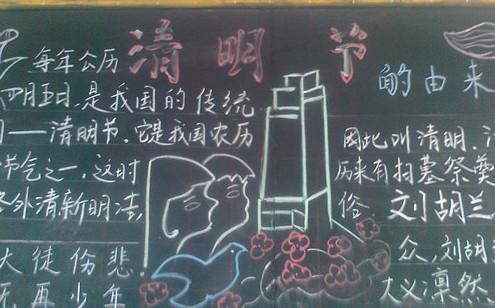 清明节
的由来
每年公历
四月五日,是我国的传统
——清明节。它是我国农历
节气之一,这时
外清新明洁,
大徒伤悲
再少年
因此叫清明,
历来有扫墓祭奠
俗
刘胡兰
众,刘胡
大义凛然